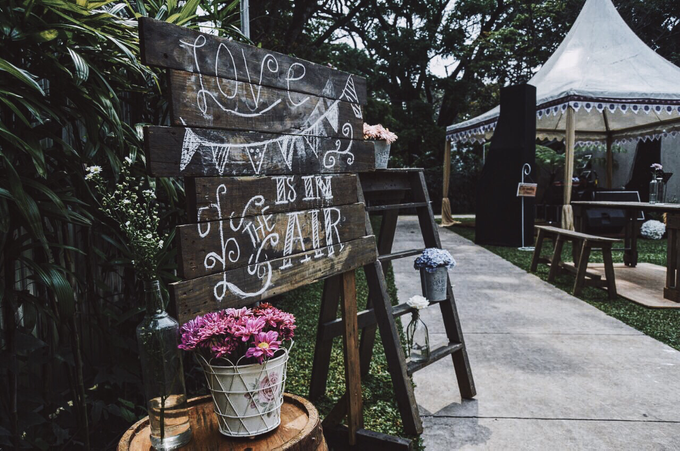 Love
IS IN
THE
AIR